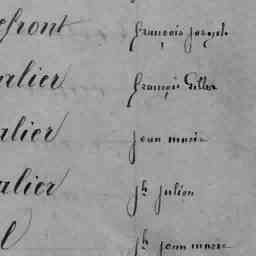 efront françois joseph
alier françois Gilles
alier jean marie
alier jh julien
l jh jean marie